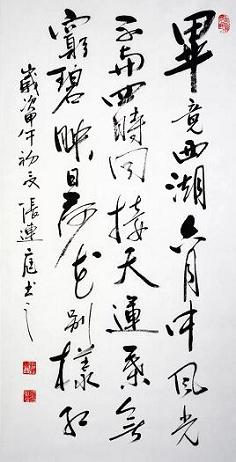 畢竟西湖六月中風光
不與四時同接天蓮葉無
窮碧映日荷花別樣紅
歲次甲午初夏張連庭書之